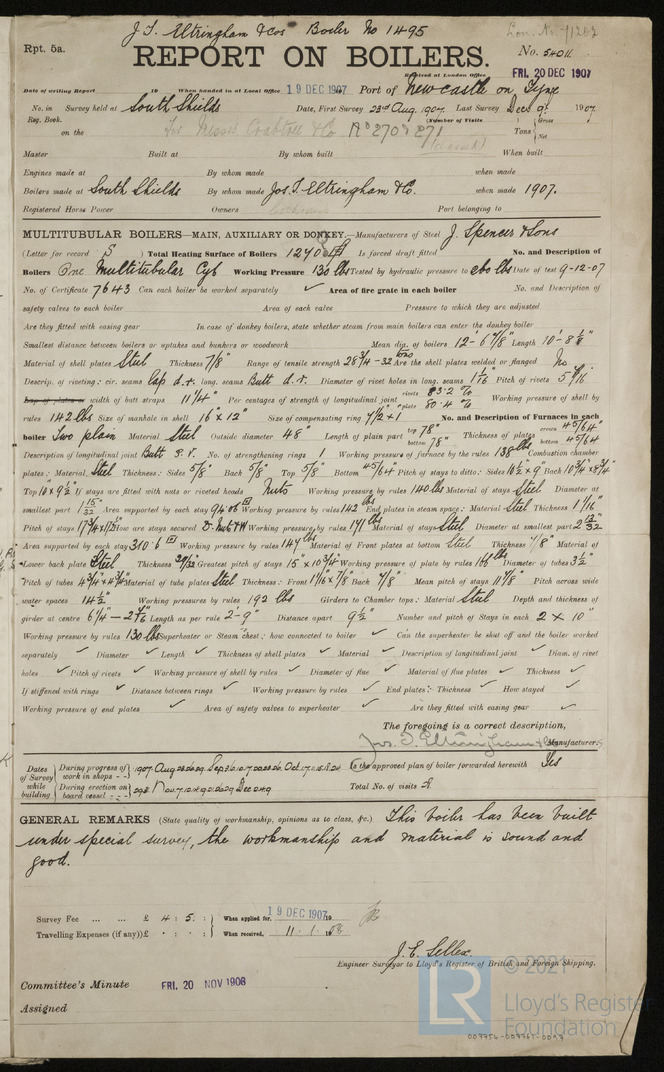 J. T. Eltringham & Co's Boiler No 1495
Rpt. 5a.
REPORT ON BOILERS.
No. 54011
Received at London Office FRI. 20 DEC 1907
Date of writing Report 19 When handed in at Local Office 19 DEC 1907 Port of Newcastle on Tyne
No. in Survey held at South Shields Date, First Survey 23rd Aug. 1907. Last Survey Dec 9. 1907.
Reg. Book. (Number of Visits
on the For Messrs. Crabtree & Co No 270 & 271 Tons Gross Net
Master Built at By whom built When built
Engines made at By whom made when made
Boilers made at South Shields By whom made Jos. T. Eltringham & Co. when made 1907.
Registered Horse Power Owners Port belonging to
MULTITUBULAR BOILERS—MAIN, AUXILIARY OR DONKEY.—Manufacturers of Steel J. Spencer & Sons
(Letter for record S ) Total Heating Surface of Boilers 1240 Is forced draft fitted No. and Description of
Boilers One Multitubular Cyl Working Pressure 130 lbs Tested by hydraulic pressure to 260 lbs Date of test 9-12-07
No. of Certificate 7643 Can each boiler be worked separately ✓ Area of fire grate in each boiler No. and Description of
safety valves to each boiler Area of each valve Pressure to which they are adjusted
Are they fitted with easing gear In case of donkey boilers, state whether steam from main boilers can enter the donkey boiler
Smallest distance between boilers or uptakes and bunkers or woodwork Mean dia. of boilers 12'-6 7/8" Length 10'-8 1/8"
Material of shell plates Steel Thickness 7/8" Range of tensile strength 28 3/4-32 tons Are the shell plates welded or flanged No
Descrip. of riveting: cir. seams lap d.r. long. seams Butt d.r. Diameter of rivet holes in long. seams 1 1/16 Pitch of rivets 5 9/16"
Lap of plates or width of butt straps 11 1/4" Per centages of strength of longitudinal joint rivets 83.2 % plate 80.4 % Working pressure of shell by
rules 142 lbs Size of manhole in shell 16" x 12" Size of compensating ring 7 1/2 x 1" No. and Description of Furnaces in each
boiler Two plain Material Steel Outside diameter 48" Length of plain part top 78" bottom 78" Thickness of plates crown 45/64" bottom 45/64"
Description of longitudinal joint Butt No. of strengthening rings 1 Working pressure of furnace by the rules 138 lbs Combustion chamber
plates: Material Steel Thickness: Sides 5/8" Back 5/8" Top 5/8" Bottom 45/64" Pitch of stays to ditto: Sides 10 1/2 x 9" Back 10 3/4 x 8 3/4"
Top 10" x 9 1/2" If stays are fitted with nuts or riveted heads Nuts Working pressure by rules 140 lbs Material of stays Steel Diameter at
smallest part 1 15/32" Area supported by each stay 94.06 Working pressure by rules 142 lbs End plates in steam space: Material Steel Thickness 1 1/16"
Pitch of stays How are stays secured D. Nuts & W Working pressure by rules 171 lbs Material of stays Steel Diameter at smallest part 2 13/32
Area supported by each stay 310.6 Working pressure by rules 147 lbs Material of Front plates at bottom Steel Thickness 7/8" Material of
Lower back plate Steel Thickness 29/32 Greatest pitch of stays 15" x 10 3/4" Working pressure of plate by rules 166 lbs Diameter of tubes 3 1/2"
Pitch of tubes 4 3/4" x 4 3/4" Material of tube plates Steel Thickness: Front 1 1/16 x 7/8 Back 7/8" Mean pitch of stays 11 7/8" Pitch across wide
water spaces 14 1/2" Working pressures by rules 192 lbs Girders to Chamber tops: Material Steel Depth and thickness of
girder at centre Length as per rule 2'-9" Distance apart 9 1/2" Number and pitch of Stays in each 2 x 10"
Working pressure by rules 130 lbs Superheater or Steam chest; how connected to boiler ✓ Can the superheater be shut off and the boiler worked
separately ✓ Diameter ✓ Length ✓ Thickness of shell plates ✓ Material ✓ Description of longitudinal joint ✓ Diam. of rivet
holes ✓ Pitch of rivets ✓ Working pressure of shell by rules ✓ Diameter of flue ✓ Material of flue plates ✓ Thickness ✓
If stiffened with rings ✓ Distance between rings ✓ Working pressure by rules ✓ End plates: Thickness ✓ How stayed ✓
Working pressure of end plates ✓ Area of safety valves to superheater ✓ Are they fitted with easing gear ✓
The foregoing is a correct description,
Jos. T. Eltringham & Co. Manufacturer.
Dates of Survey while building
During progress of work in shops - - 1907. Aug
During erection on board vessel - - -
Is the approved plan of boiler forwarded herewith Yes
Total No. of visits
GENERAL REMARKS (State quality of workmanship, opinions as to class, &c.) This boiler has been built
under special survey, the workmanship and material is sound and
good.
Survey Fee ... ... £ 4 : 5 : When applied for, 19 DEC 1907
Travelling Expenses (if any) £ : : When received, 11.1.1908
J. E. Sellex.
Engineer Surveyor to Lloyd's Register of British and Foreign Shipping.
Committee's Minute FRI. 20 NOV 1908
Assigned
© 2021
LR
Lloyd's Register
Foundation
009756-009767-0097